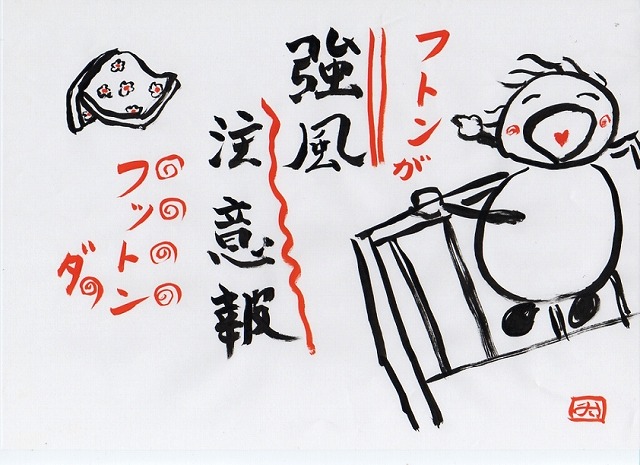 フトンが
強風
注意報
フットン
ダ